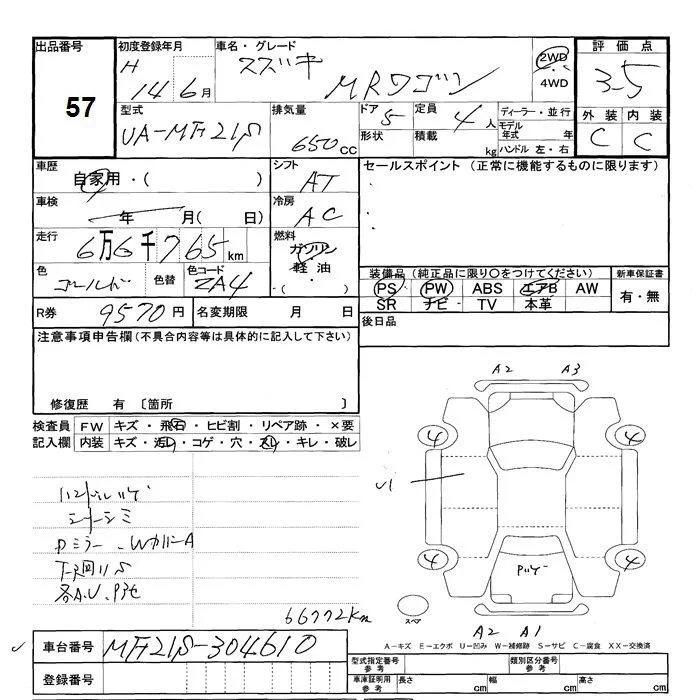 出品番号 57
初度登録年月 H 14年 6月
車名・グレード スズキ MRワゴン
2WD
4WD
評価点 3-5
外装 C 内装 C
型式 UA-MF21S
排気量 650 cc
ドア 5 形状
定員 4 人 積載 kg
ディーラー・並行
モデル年式 年
ハンドル 左・右
車歴 自家用・( )
シフト AT
セールスポイント (正常に機能するものに限ります)
車検 年 月( 日)
冷房 AC
走行 6万6千765 km
燃料 ガソリン 軽油 ・( )
色 ゴールド 色替 色コード ZA4
装備品 (純正品に限り○をつけてください) 新車保証書
PS PW ABS エアB AW 有・無
SR ナビ TV 本革
R券 9570円 名変期限 月 日
後日品
注意事項申告欄 (不具合内容等は具体的に記入して下さい)
修復歴 有 〔箇所 〕
検査員 FW キズ・飛石・ヒビ割・リペア跡・×要
記入欄 内装 キズ・汚れ・コゲ・穴・スレ・キレ・破レ
A2 A3
4 4
U1
ハンドルハゲ
シートシミ
4 4
スペア
A2 A1
66772Km
A-キズ E-エクボ U-凹み W-補修跡 S-サビ C-腐食 XX-交換済
車台番号 MF21S-304610
登録番号
型式指定番号 参考 類別区分番号 参考
車庫証明用 参考 長さ cm 幅 cm 高さ cm